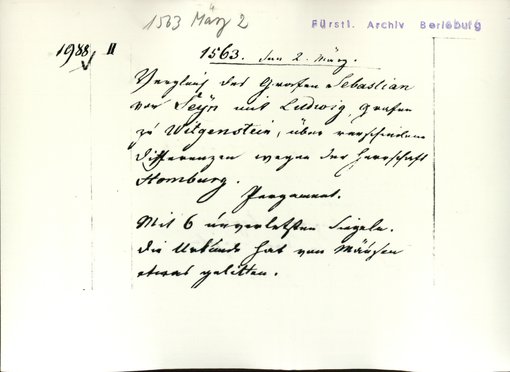 1563 März 2
Fürstl. Archiv Berleburg
1988 II
1563. den 2. März.
Vergleich des Grafen Sebastian
von Seyn mit Ludwig, Grafen
zu Witgenstein, über verschiedene
Differenzen wegen der Herrschaft
Homburg.
Pergament.
Mit 6 unverletzten Siegeln.
Die Urkunde hat von Mäusen
etwas gelitten.